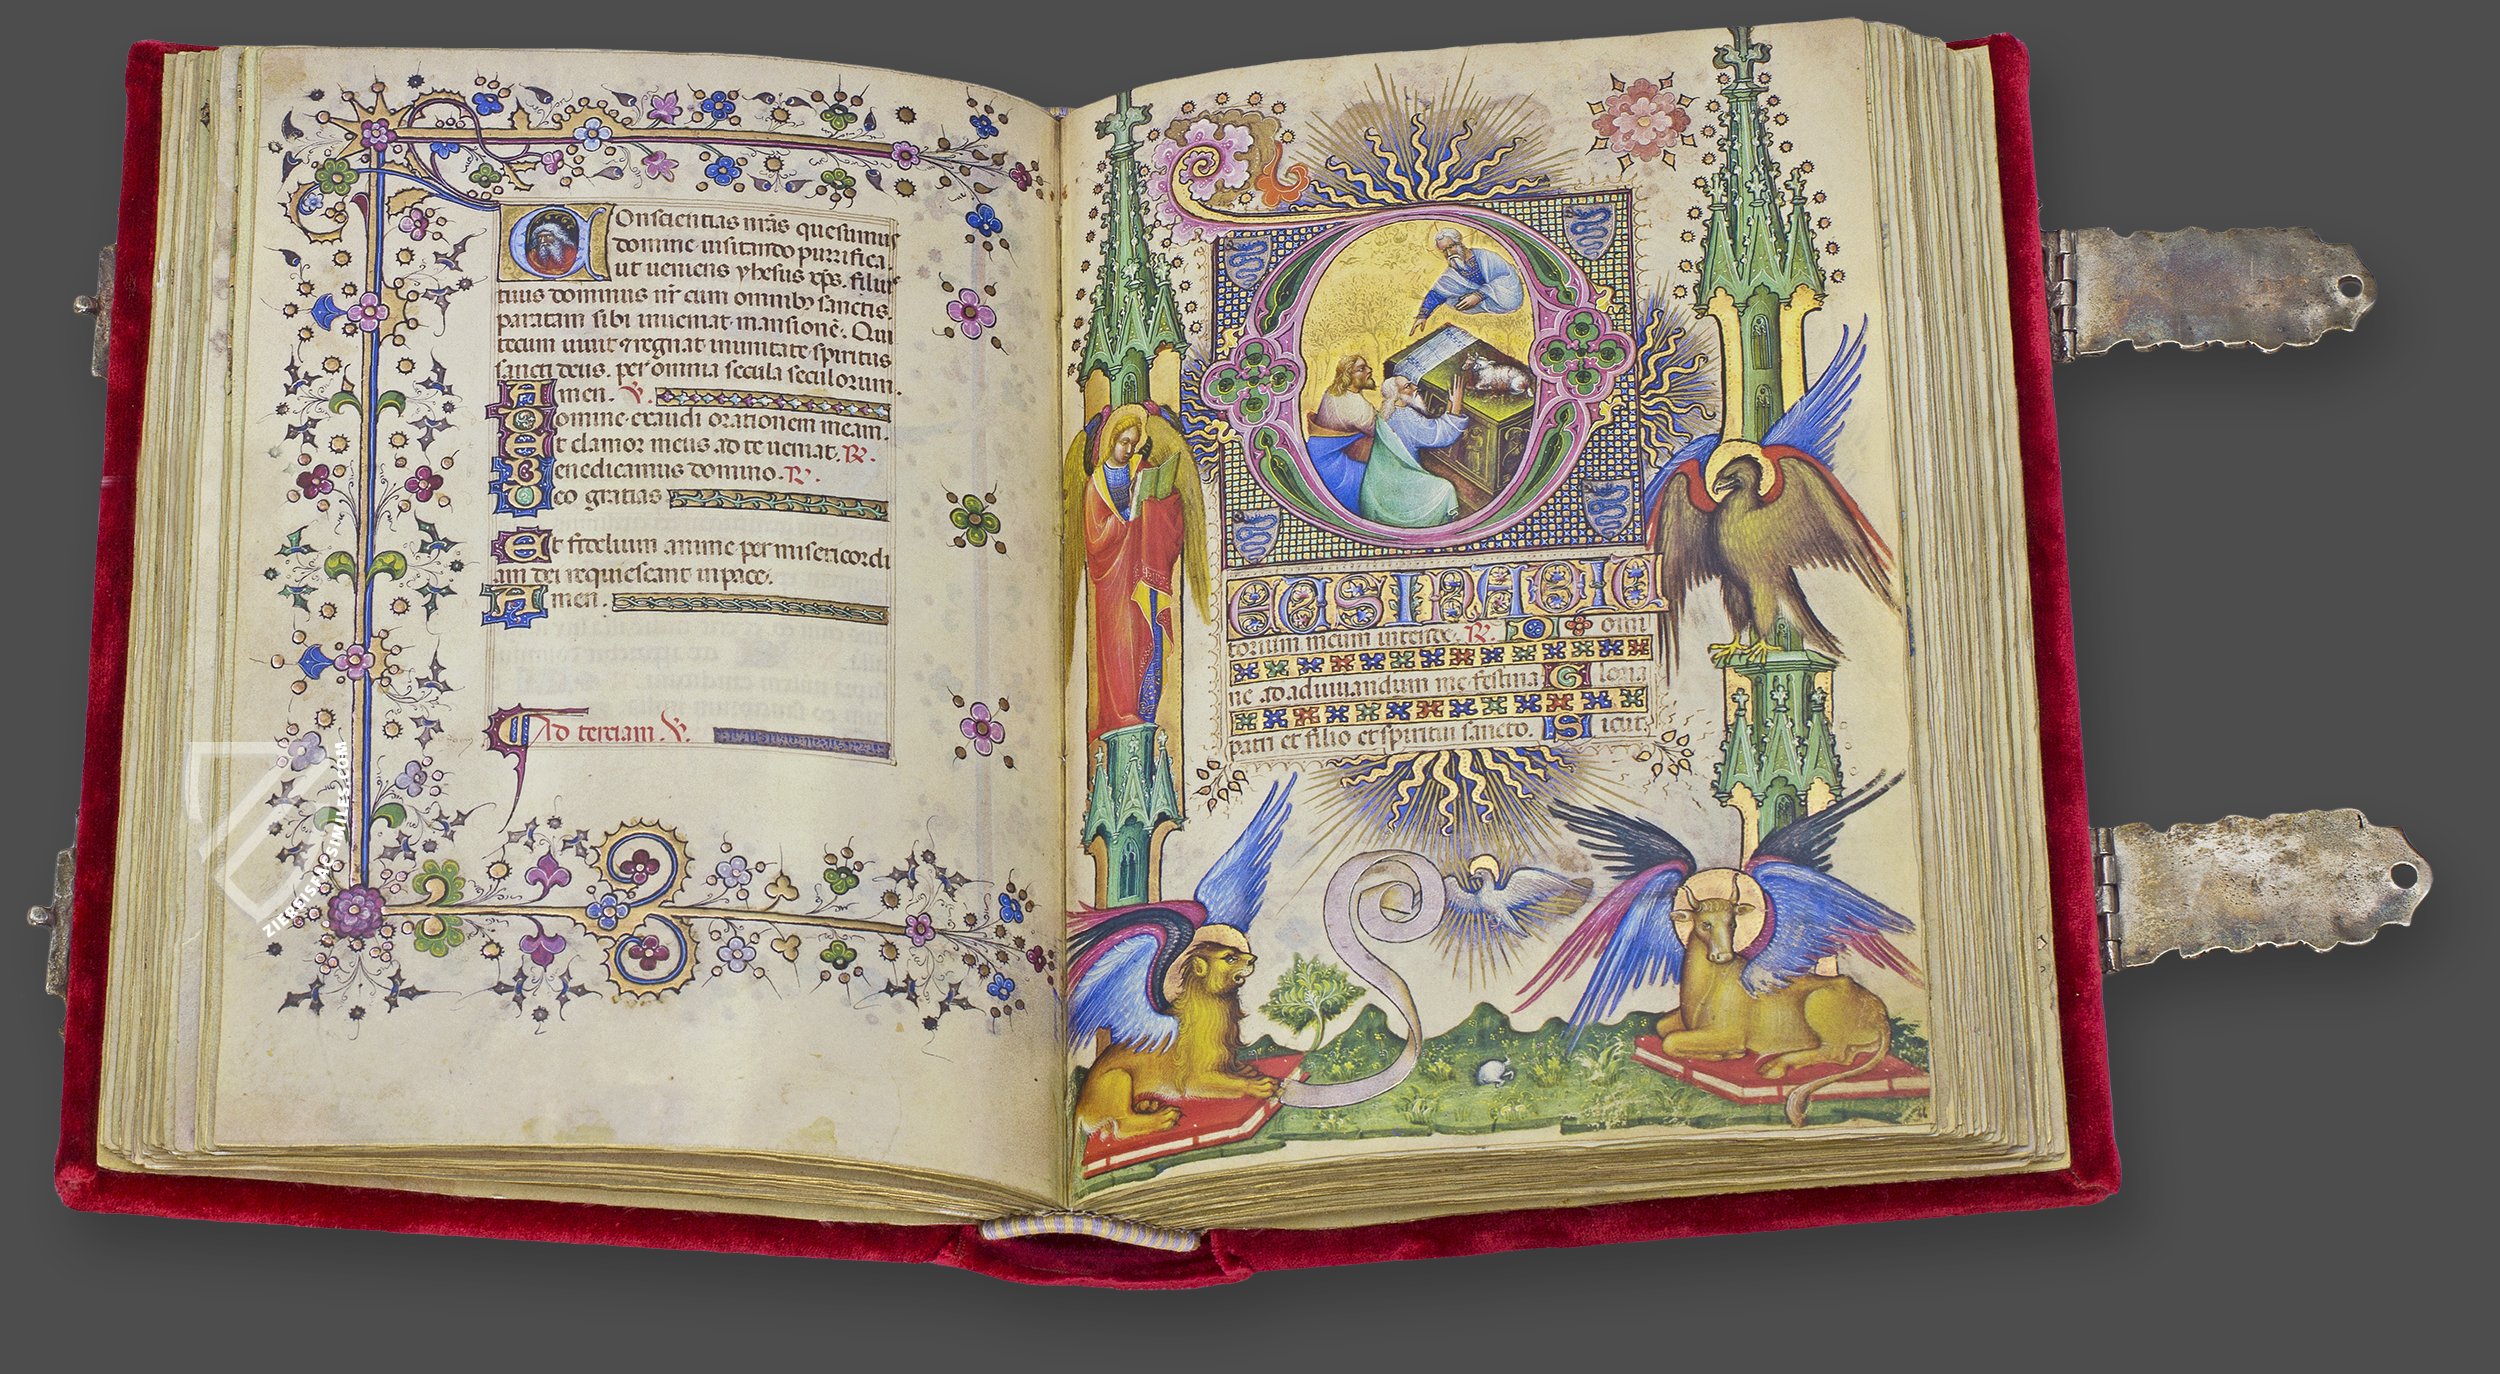 Onscientias nr̃as quesumus
domine uisitando purrifica.
ut ueniens yhesus xp̄s. filius
tuus dominus nr̄ cum omnibꝫ sanctis.
paratam sibi inueniat mansionē. Qui
tecum uiuit ⁊ regnat inunitate spiritus
sancti deus. per omnia secula seculorum.
Amen. V.
Domine exaudi orationem meam.
Et clamor meus ad te ueniat. R.
Benedicamus domino. R.
Deo gratias
Et fidelium anime per misericordi
am dei requiescant inpace.
Amen.
Ad terciam. V.
EUSINADIU
torium meum intende. R. Dom
ne ad adiuuandum me festina Gloria
patri et filio et spiritui sancto. Sicut
ZIEREISFACSIMILES.COM